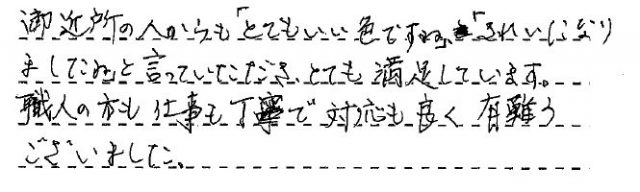 御近所の人からも「とてもいい色ですね」「きれいになり
ましたね」と言っていただき、とても満足しています。
職人の方も仕事も丁寧で対応も良く有難う
ございました。